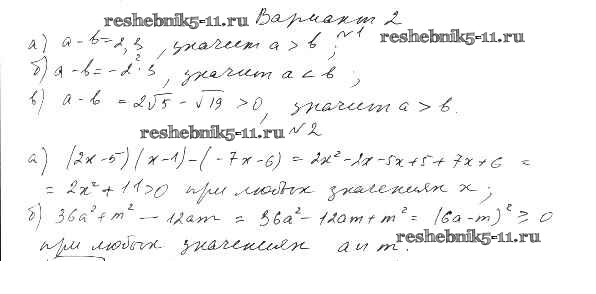 reshebnik5-11.ru Вариант 2
№1
а) a-b=2,3, значит a > b; reshebnik5-11.ru
б) a-b=-2,3, значит a < b;
в) a-b = 2√5 - √19 > 0, значит a > b.
reshebnik5-11.ru №2
а) (2x-5)(x-1)-(-7x-6) = 2x²-2x-5x+5+7x+6 =
= 2x²+11>0 при любых значениях x;
б) 36a²+m² - 12am = 36a²-12am+m² = (6a-m)² ≥ 0
при любых значениях a и m. reshebnik5-11.ru